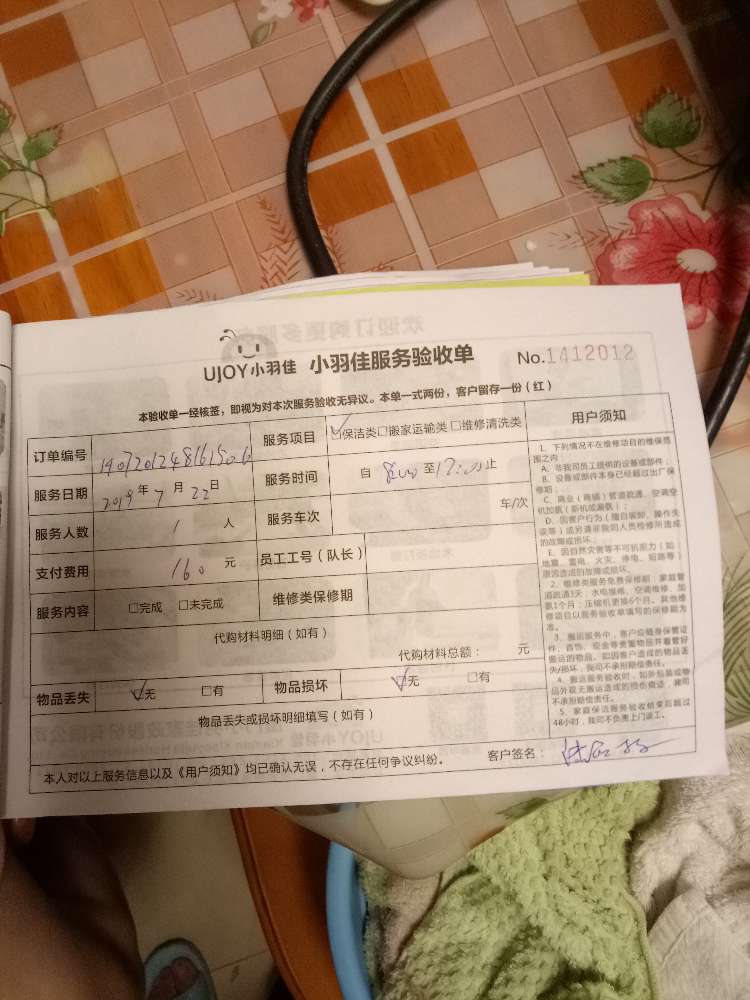 UJOY小羽佳 小羽佳服务验收单 No.1412012
本验收单一经核签，即视为对本次服务验收无异议。本单一式两份，客户留存一份（红）
订单编号 服务项目 ☑保洁类□搬家运输类□维修清洗类
服务日期 2019年7月22日 服务时间 自 8:00 至12:00止
服务人数 1 人 服务车次 车/次
支付费用 160 元 员工工号（队长）
服务内容 □完成 □未完成 维修类保修期
代购材料明细（如有）
代购材料总额： 元
物品丢失 ☑无 □有 物品损坏 ☑无 □有
物品丢失或损坏明细填写（如有）
本人对以上服务信息以及《用户须知》均已确认无误，不存在任何争议纠纷。 客户签名：
用户须知
1、下列情况不在维修项目的维保范
围之内：
A、非我司员工提供的设备或部件；
B、设备或部件本身已经超过出厂保
修期；
C、商业（商铺）管道疏通、空调空
机加氨（新机或漏氨）；
D、因客户行为（擅自装卸、操作失
误等）或另请非我司人员检修所造成
的故障或损坏；
E、因自然灾害等不可抗原力（如：
地震、雷电、火灾、停电、短路等）
原因造成的故障或损坏。
2、维修类服务免费保修期：家庭管
道疏通3天；水电维修、空调维修、加
氨1个月；压缩机更换6个月。其他维
修项目以服务验收单填写的保修期为
准。
3、搬运服务中，客户应随身保管证
件、首饰、现金等贵重物品并看管好
搬运的物品。如因客户造成的物品丢
失/损坏，我司不承担赔偿责任。
4、搬运服务验收时，如外包装或物
品外观无搬运造成的损伤痕迹，我司
不承担赔偿责任。
5、家庭保洁服务验收结束后超过
48小时，我司不负责上门返工。